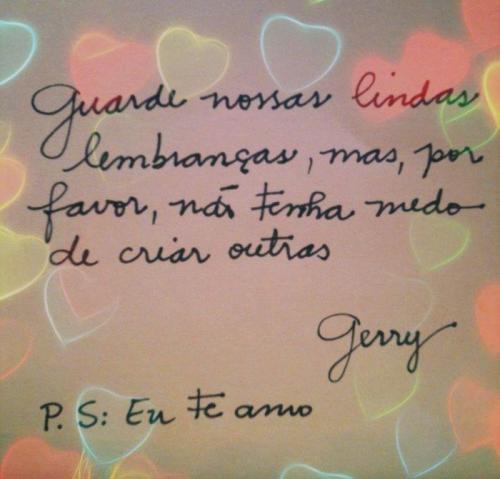 Guarde nossas lindas
lembranças, mas, por
favor, não tenha medo
de criar outras
Gerry
P. S: Eu te amo